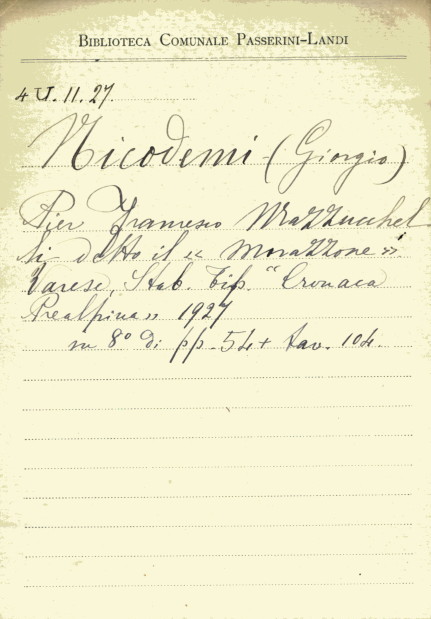 BIBLIOTECA COMUNALE PASSERINI-LANDI
4 U. 11. 27.
Nicodemi (Giorgio)
Pier Francesco Mazzucchel
li detto il « Morazzone »
Varese, Stab. Tip. "Cronaca
Prealpina" 1927
in 8° di pp. 54 + tav. 104.